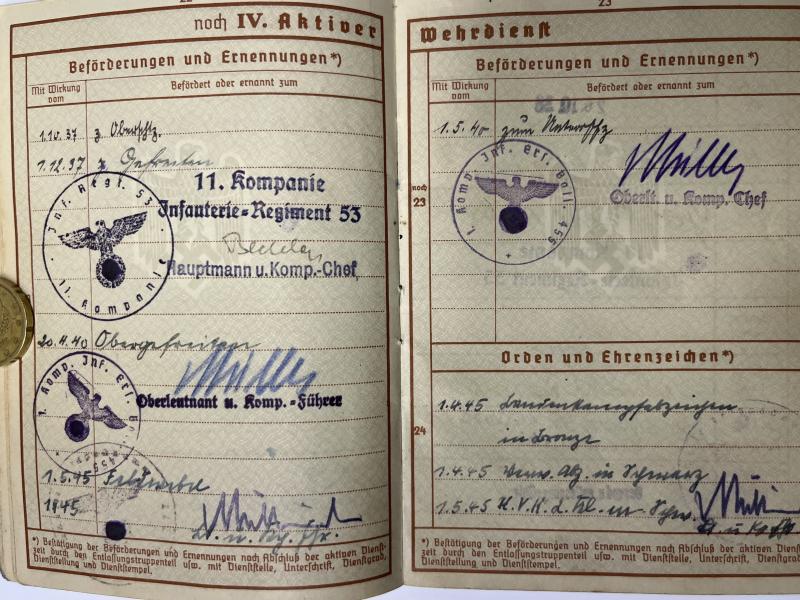 22
noch IV. Aktiver
Beförderungen und Ernennungen*)
Mit Wirkung vom
Befördert oder ernannt zum
1.10.37 z. Oberschtz.
1.12.37 z. Gefreiten
11. Kompanie
Infanterie-Regiment 53
Inf. Regt. 53
11. Kompanie
Hauptmann u. Komp.-Chef
20.4.40 Obergefreiter
Müller
Oberleutnant u. Komp.-Führer
1. Komp. Inf. Ers. Batl. 455
1.5.45 Feldwebel
1945
*) Bestätigung der Beförderungen und Ernennungen nach Abschluß der aktiven Dienst-
zeit durch den Entlassungstruppenteil usw. mit Dienststelle, Unterschrift, Dienstgrad,
Dienststellung und Dienststempel.
23
Wehrdienst
Beförderungen und Ernennungen*)
Mit Wirkung vom
Befördert oder ernannt zum
1.5.40 zum Unteroffz
Müller
1. Komp. Inf. Ers. Batl. 455
Oberlt. u. Komp. Chef
noch
23
Orden und Ehrenzeichen*)
24
1.4.45 Bandenkampfabzeichen
in Bronze
1.4.45 Verw. Abz. in Schwarz
1.5.45 K.V.K. 2. Kl. m. Schw.
*) Bestätigung der Beförderungen und Ernennungen nach Abschluß der aktiven Dienst-
zeit durch den Entlassungstruppenteil usw. mit Dienststelle, Unterschrift, Dienstgrad,
Dienststellung und Dienststempel.